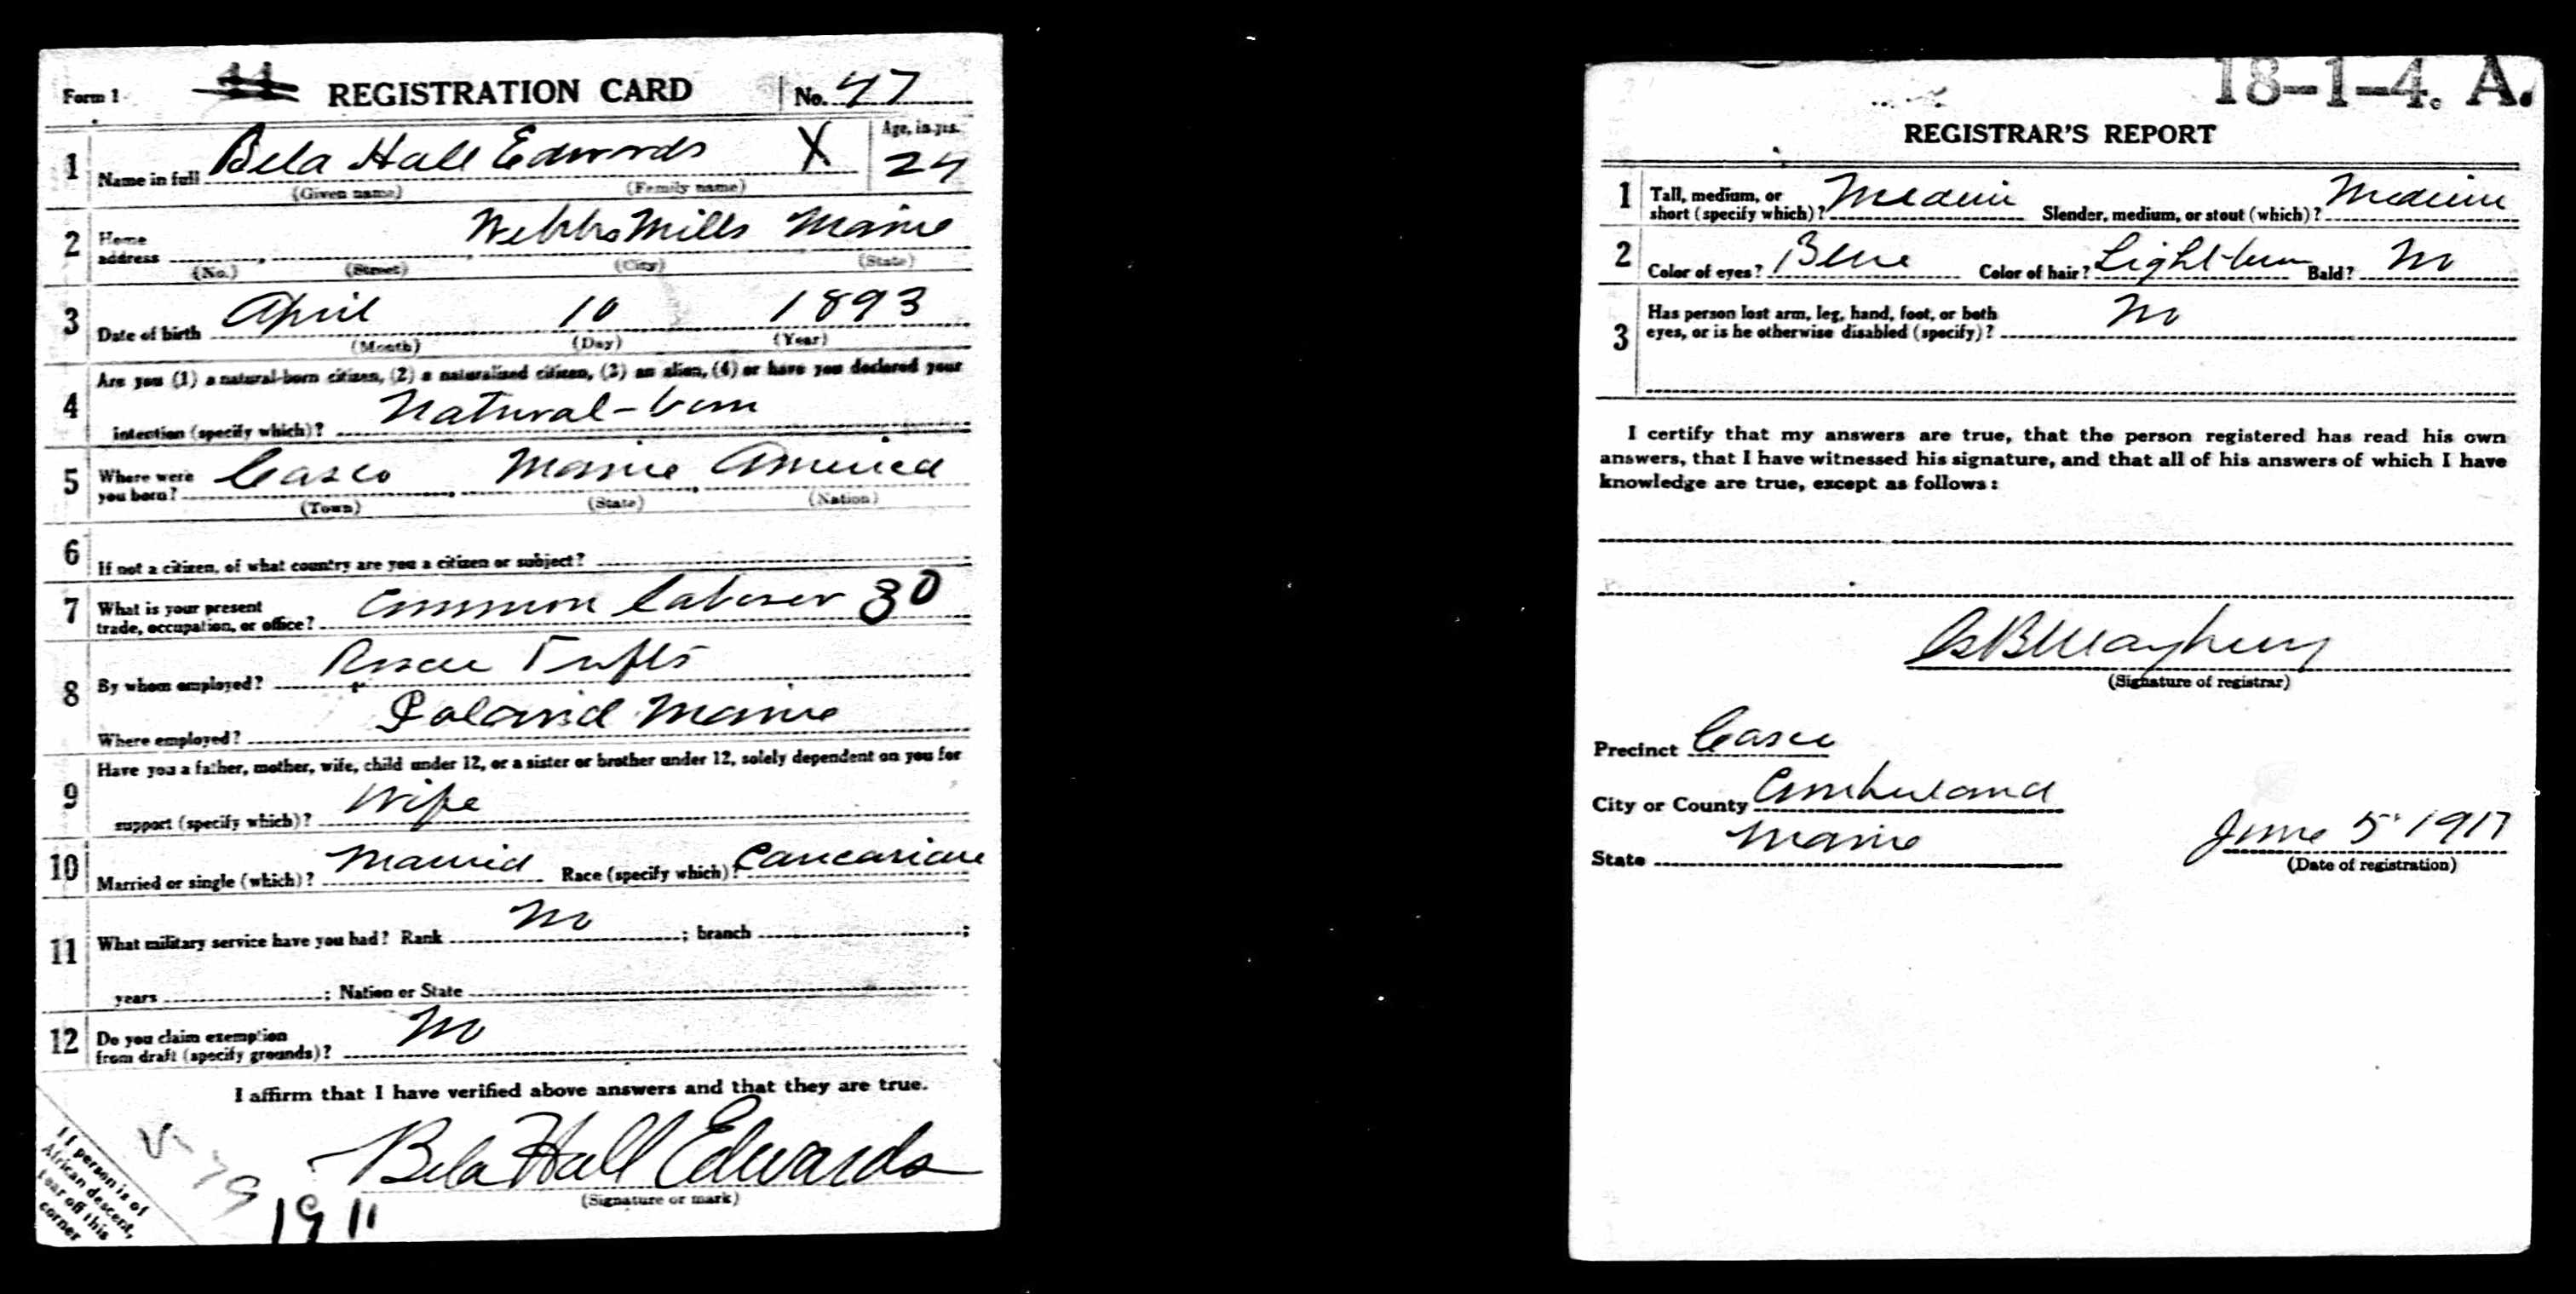 Form 1 11 REGISTRATION CARD No. 47
1 Name in full Bela Hall Edwards X Age, in yrs. 24
(Given name) (Family name)
2 Home address Webbs Mills Maine
(No.) (Street) (City) (State)
3 Date of birth April 10 1893
(Month) (Day) (Year)
4 Are you (1) a natural-born citizen, (2) a naturalized citizen, (3) an alien, (4) or have you declared your
intention (specify which)? Natural-born
5 Where were you born? Casco Maine America
(Town) (State) (Nation)
6 If not a citizen, of what country are you a citizen or subject?
7 What is your present
trade, occupation, or office? Common laborer 30
8 By whom employed? Roscoe Tufts
Where employed? Poland Maine
9 Have you a father, mother, wife, child under 12, or a sister or brother under 12, solely dependent on you for
support (specify which)? Wife
10 Married or single (which)? Married Race (specify which)? Caucasian
11 What military service have you had? Rank No ; branch ;
years ; Nation or State
12 Do you claim exemption
from draft (specify grounds)? No
I affirm that I have verified above answers and that they are true.
Bela Hall Edwards
(Signature or mark)
If person is of
African descent,
tear off this
corner
19 11
18-1-4. A.
REGISTRAR'S REPORT
1 Tall, medium, or
short (specify which)? Medium Slender, medium, or stout (which)? Medium
2 Color of eyes? Blue Color of hair? Light-brown Bald? No
3 Has person lost arm, leg, hand, foot, or both
eyes, or is he otherwise disabled (specify)? No
I certify that my answers are true, that the person registered has read his own
answers, that I have witnessed his signature, and that all of his answers of which I have
knowledge are true, except as follows:
(Signature of registrar)
Precinct Casco
City or County Cumberland
State Maine June 5 1917
(Date of registration)